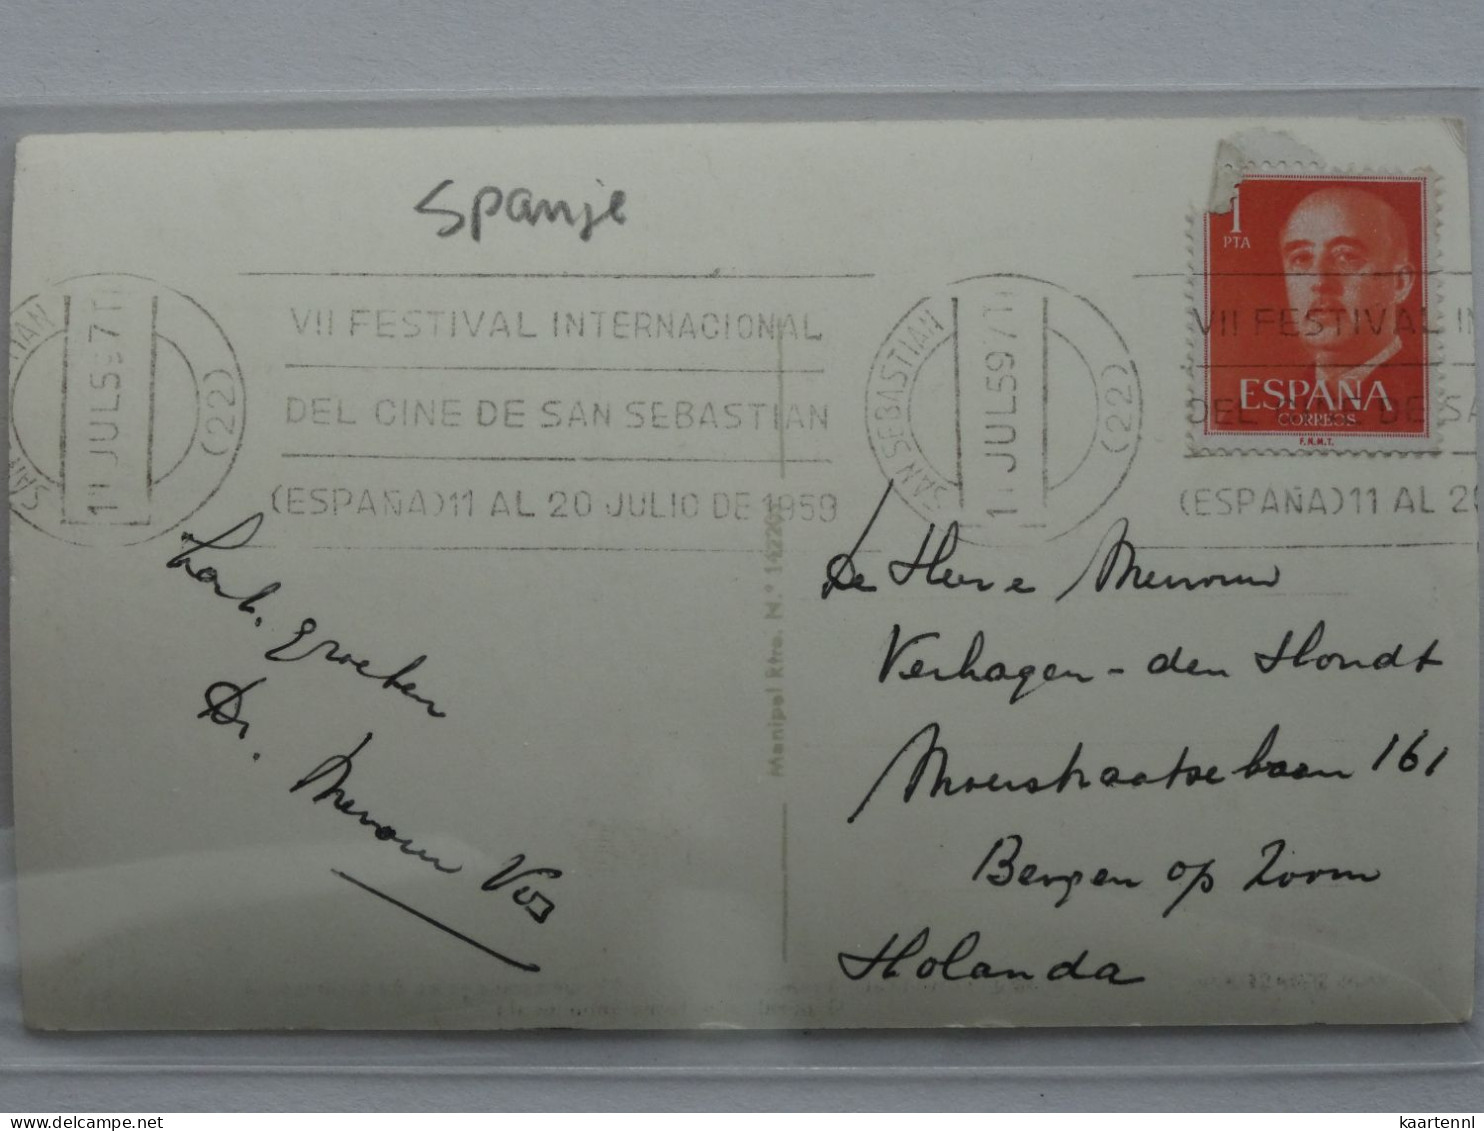 Spanje
VII FESTIVAL INTERNACIONAL
DEL CINE DE SAN SEBASTIAN
(ESPAÑA) 11 AL 20 JULIO DE 1959
SAN SEBASTIAN
JUL 59
(22)
SAN SEBASTIAN
JUL 59
(22)
VII FESTIVAL IN
DE SA
(ESPAÑA) 11 AL 20
1
PTA
ESPAÑA
CORREOS
F.N.M.T.
Hart. groeten
Dr. Mevrouw Vos
Manipel Rtro. N.°
De Heer e Mevrouw
Verhagen - den Hondt
Moerstraatsebaan 161
Bergen op Zoom
Holanda
kaartennl